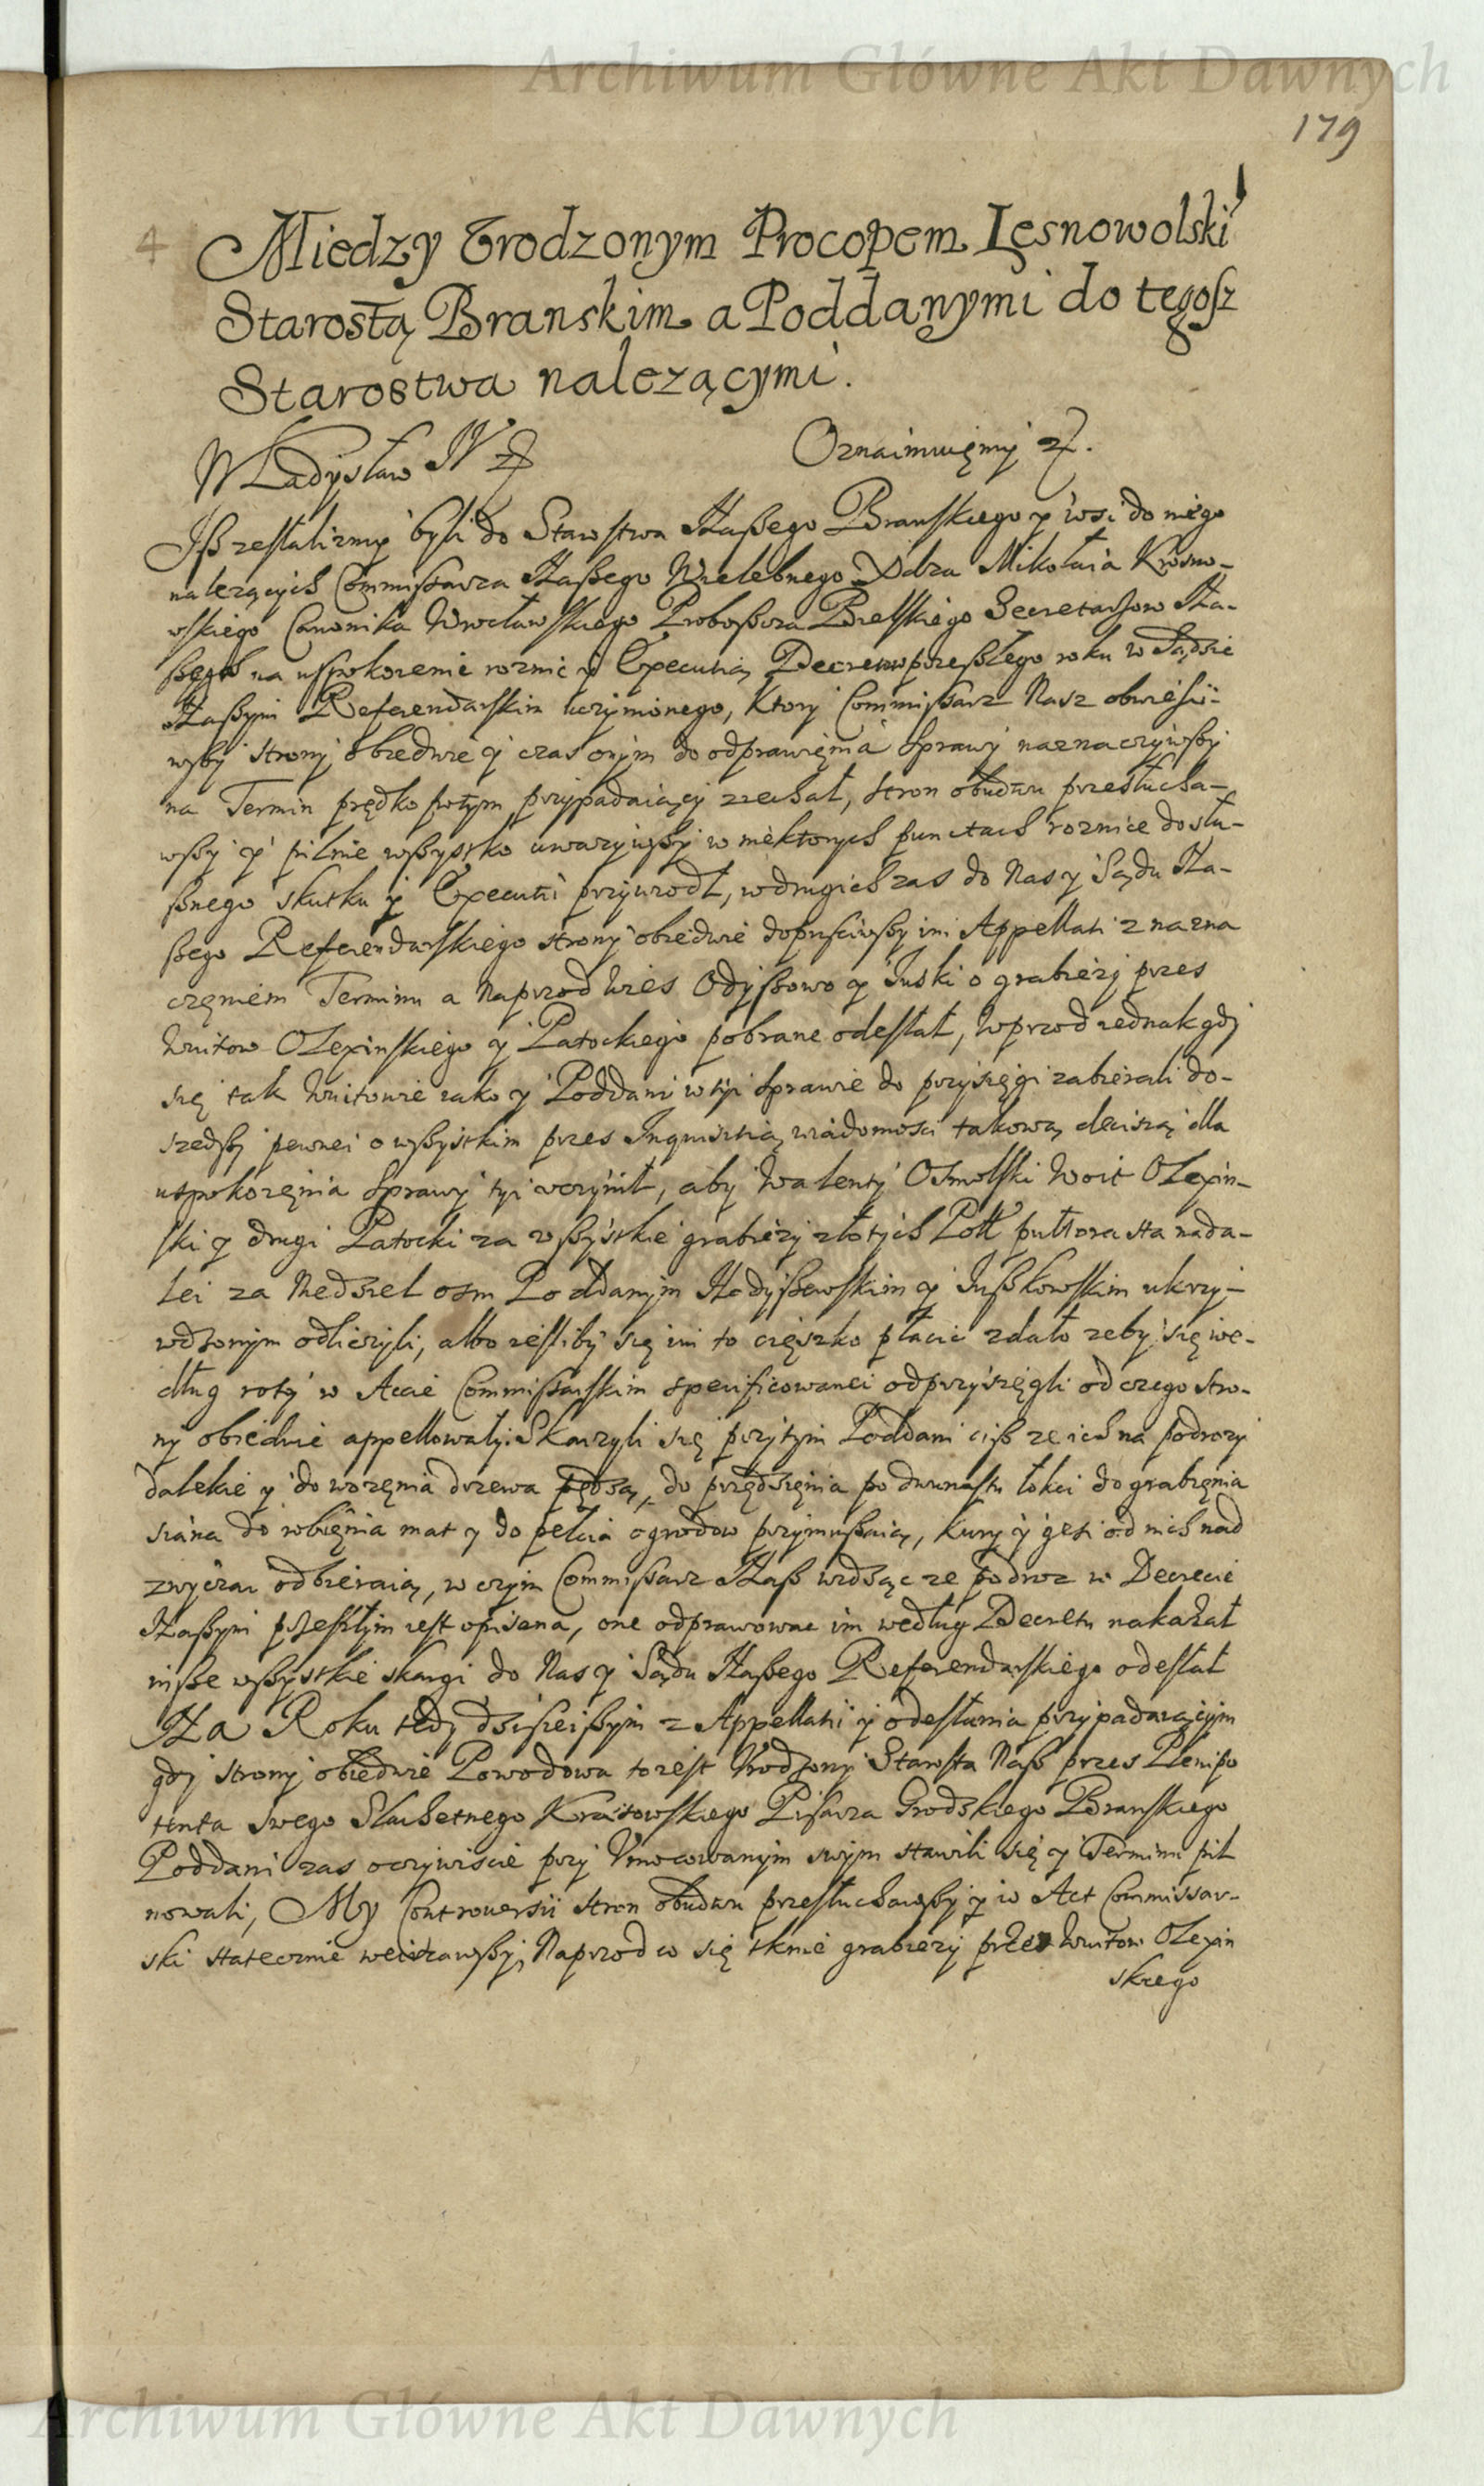 Archiwum Główne Akt Dawnych
179
4
Miedzy Vrodzonym Procopem Lęsnowolski
Starostą Branskim a Poddanymi do tegosz
Starostwa nalezącymi.
Władysław IV
Oznaimuięmy
Iß zesłalizmy byli do Starostwa Naßego Branskiego y wsi do niego
nalezących Commissarza Naßego Wielebnego Xdza Mikołaia Krosno-
wskiego Canonika Wrocławskiego Proboßcza Bielskiego Secretarzow Na-
ßego na uspokoienie roznic y Executią Decretow przeszłego roku w Sądzie
Naßym Referendarskim uczynionego, Ktory Commissarz Nasz obwiesci-
wßy strony obiedwie y czas onym do odprawięnia sprawy naznaczywßy
na Termin prędko potym przypadaiący ziechał, stron obudwu przesłucha-
wßy y pilnie wßystko uwazywßy w niektorych punctach roznice do słu-
ßnego skutku y Executii przywiodł, w drugich zas do Nas y Sądu Na-
ßego Referendarskiego strony obiedwie dopusciwßy im Appellatii z nazna
częniem Terminu a Naprzod wies Odyßowo y Iuski o grabiezy przes
Woitow Olexinskiego y Patockiego pobrane odesłał, Wprzod iednak gdy
się tak Woitowie iako y Poddani w tyi sprawie do przysięgi zabierali do-
szedßy pewnei o wßystkim przes Inquisitią wiadomosci takową decisią dla
uspokoięnia sprawy tyi uczynił, aby Walenty Osmolski Woit Olexin-
ski y drugi Patocki za wßystkie grabiezy złotych Poll pułtora sta nada-
lei za Niedziel osm Poddanym Hodyßewskim y Iußkowskim ukrzy-
wdzonym odliczyli, albo iesliby się im to cięszko płacic zdało zeby się we-
dług roty w Accie Commissarskim specificowanei odprzysięgli od czego stro-
ny obiedwie appellowały. Skarzyli się przytym Poddani ciß ze ich na podrozy
dalekie y do wozęnia drzewa pędzą, do przędzięnia po dwunastu łokci do grabięnia
siana do robięnia mat y do pełcia ogrodow przymußaią, kury y gęsi od nich nad
zwyczai odbieraią, w czym Commissarz Naß widząc ze podroz w Decrecie
Naßym przeszłym iest opisana, one odprawowac im według Decretu nakazał
insze wßystkie skargi do Nas y Sądu Naßego Referendarskiego odesłał
Na Roku tedy dzisieißym z Appellatii y odesłania przypadaiącym
gdy strony obiedwie Powodowa to iest Vrodzony Starosta Naß przes Plenipo
tenta swego Slachetnego Kraiowskiego Pisarza Grodzkiego Branskiego
Poddani zas oczywiscie przy Vmocowanym swym stawili się y Terminu pil
nowali, My Controuersii stron obudwu przesłuchawßy y w Act Commissar-
ski statecznie weirzawßy, Naprzod co się tknie grabiezy przes Woitow Olexin
skiego
Archiwum Główne Akt Dawnych